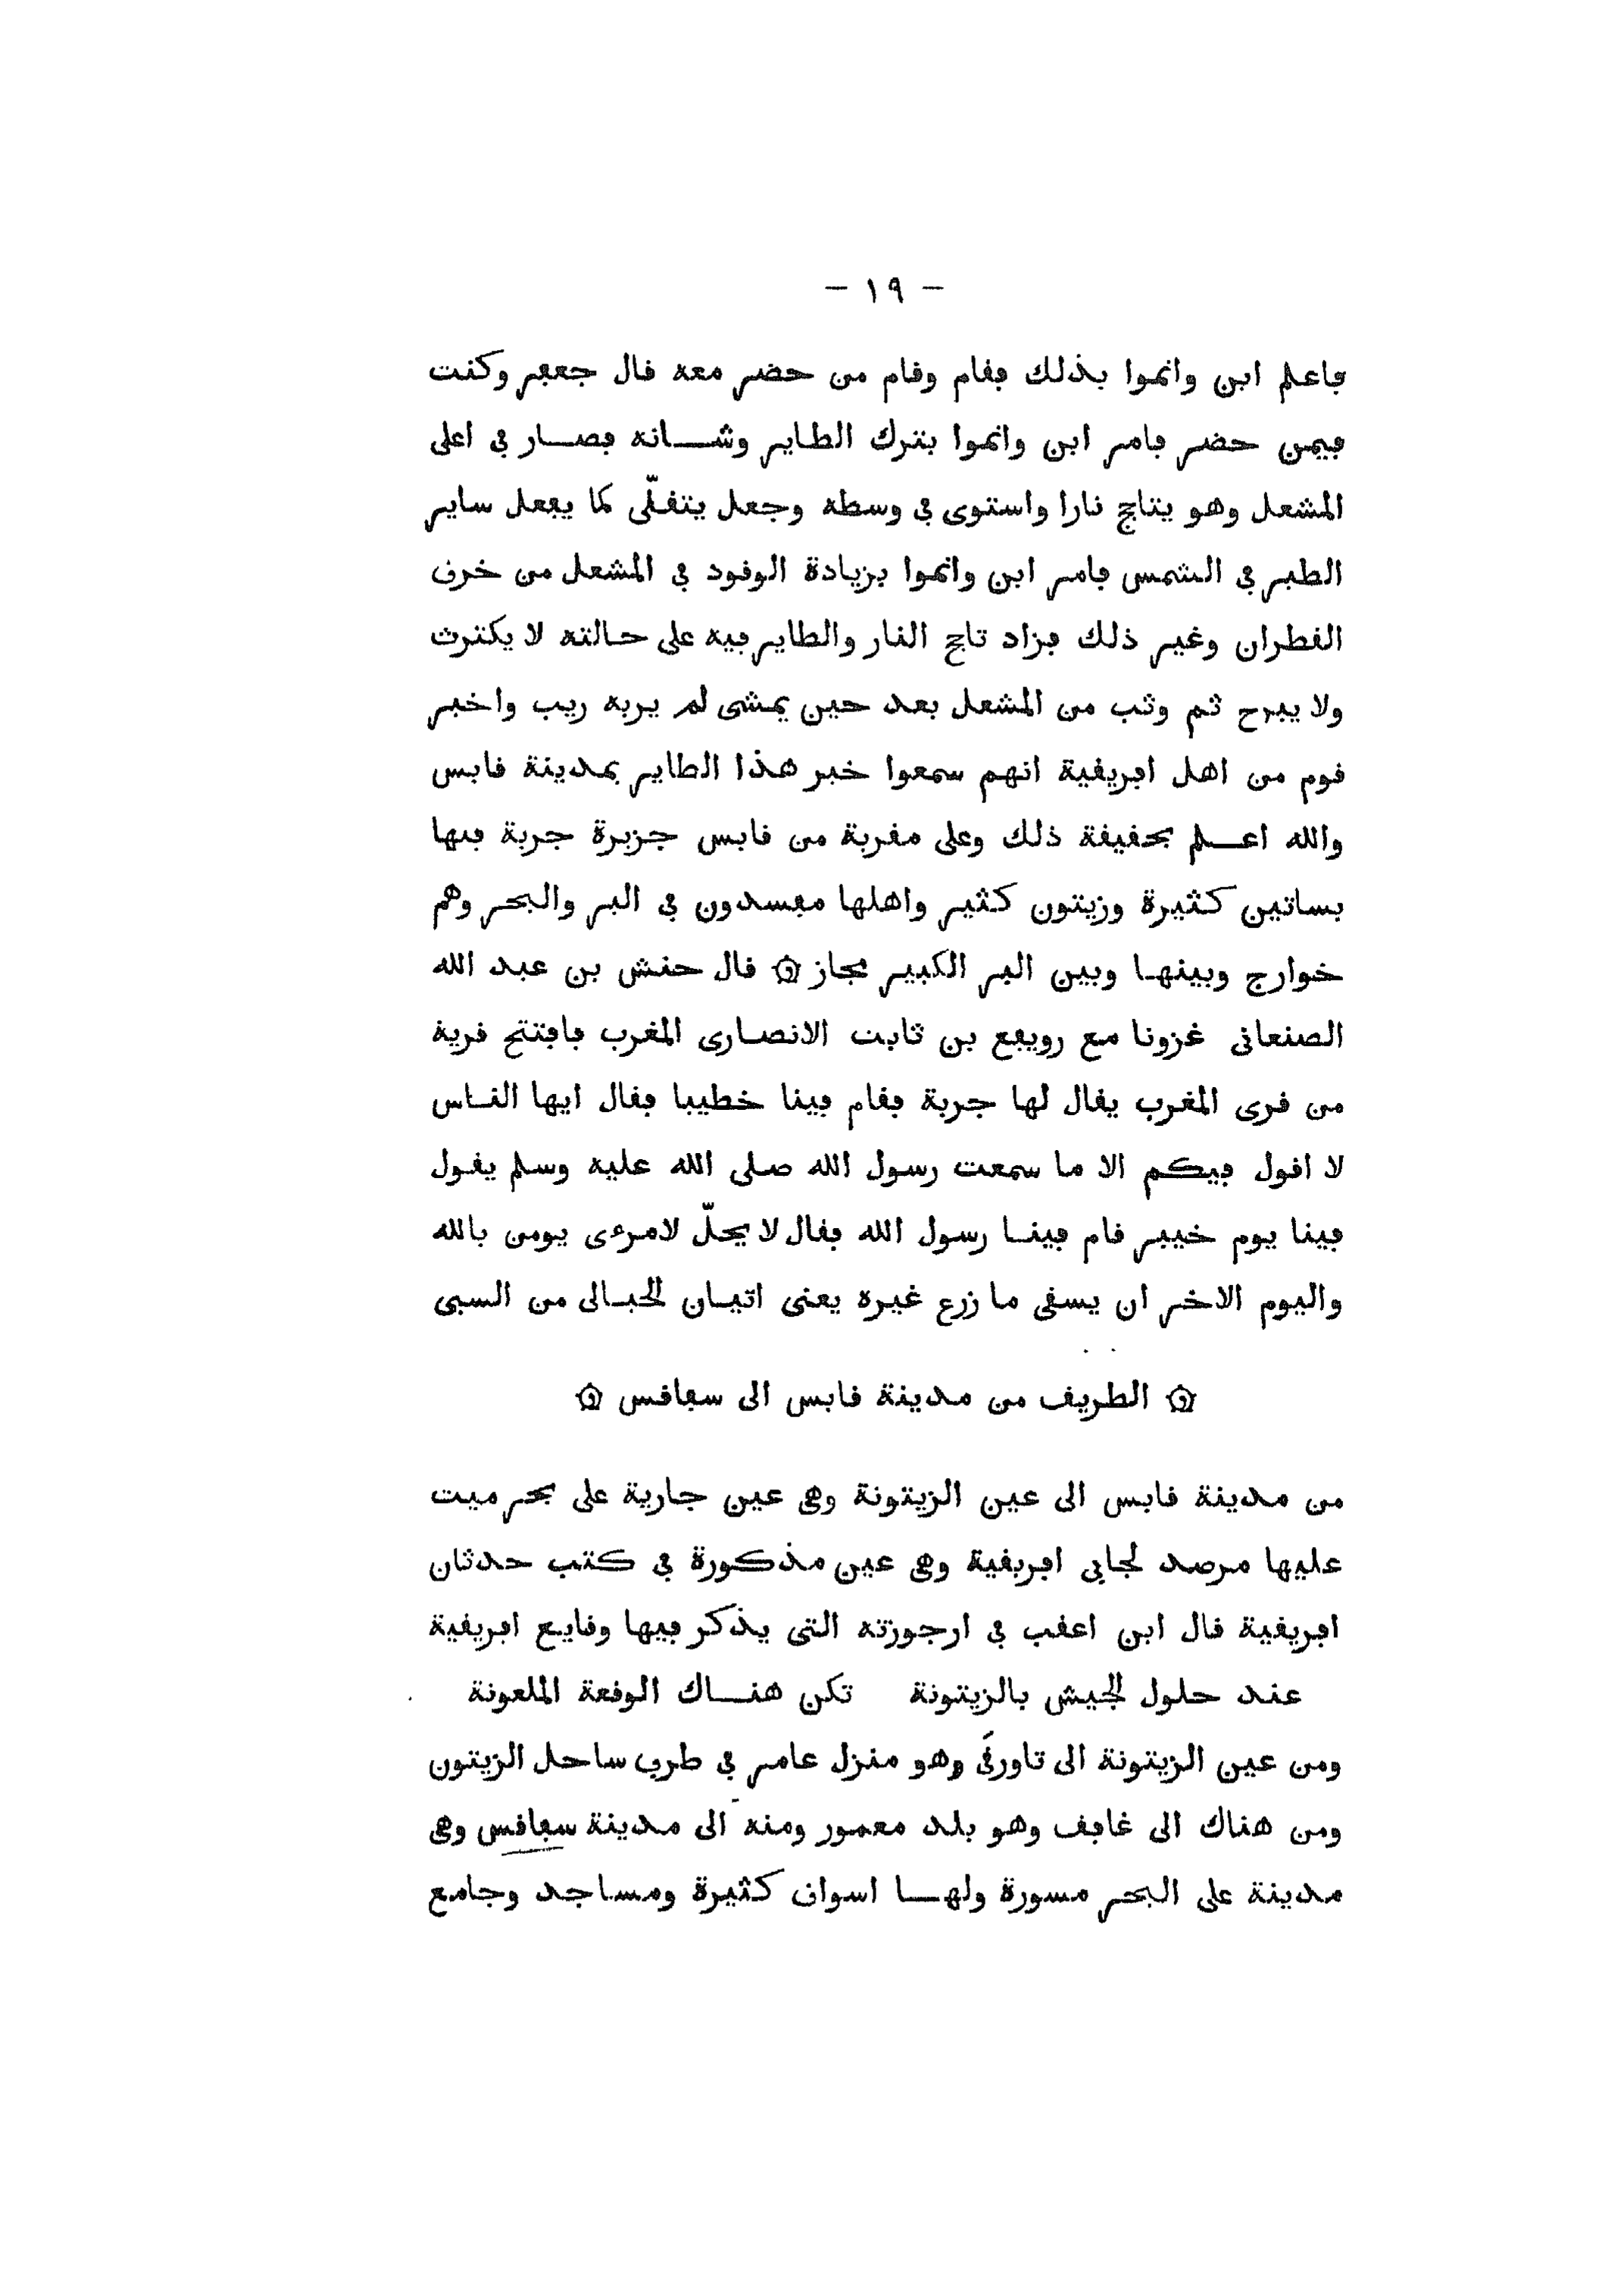 - ١٩ -
فاعلم ابن وانموا بذلك فقام وقام من حضر معه قال جعفر وكنت
فيمن حضر فامر ابن وانموا بترك الطاير وشانه فصار في اعلى
المشعل وهو يتاجج نارا واستوى في وسطه وجعل يتفلّى كما يفعل ساير
الطير في الشمس فامر ابن وانموا بزيادة الوقود في المشعل من خرق
القطران وغير ذلك فزاد تاجج النار والطاير فيه على حالته لا يكترث
ولا يبرح ثم وثب من المشعل بعد حين يمشى لم يربه ريب واخبر
قوم من اهل افريقية انهم سمعوا خبر هذا الطاير بمدينة قابس
والله اعلم بحقيقة ذلك وعلى مقربة من قابس جزيرة جربة فيها
بساتين كثيرة وزيتون كثير واهلها مفسدون في البر والبحر وهم
خوارج وبينها وبين البر الكبير مجاز ۞ قال حنش بن عبد الله
الصنعانى غزونا مع رويفع بن ثابت الانصارى المغرب فافتتح قرية
من قرى المغرب يقال لها جربة فقام فينا خطيبا فقال ايها الناس
لا اقول فيكم الا ما سمعت رسول الله صلى الله عليه وسلم يقول
فينا يوم خيبر قام فينا رسول الله فقال لا يحلّ لامرءى يومن بالله
واليوم الاخر ان يسقى ما زرع غيره يعنى اتيان الحبالى من السبى
۞ الطريق من مدينة قابس الى سفاقس ۞
من مدينة قابس الى عين الزيتونة وهى عين جارية على بحر ميت
عليها مرصد لجابى افريقية وهى عين مذكورة في كتب حدثان
افريقية قال ابن اعقب في ارجوزته التى يذكر فيها وقايع افريقية
عند حلول الجيش بالزيتونة تكن هناك الوقعة الملعونة
ومن عين الزيتونة الى تاورقَى وهو منزل عامر في طرف ساحل الزيتون
ومن هناك الى غافق وهو بلد معمور ومنه الى مدينة سفاقس وهى
مدينة على البحر مسورة ولها اسواق كثيرة ومساجد وجامع